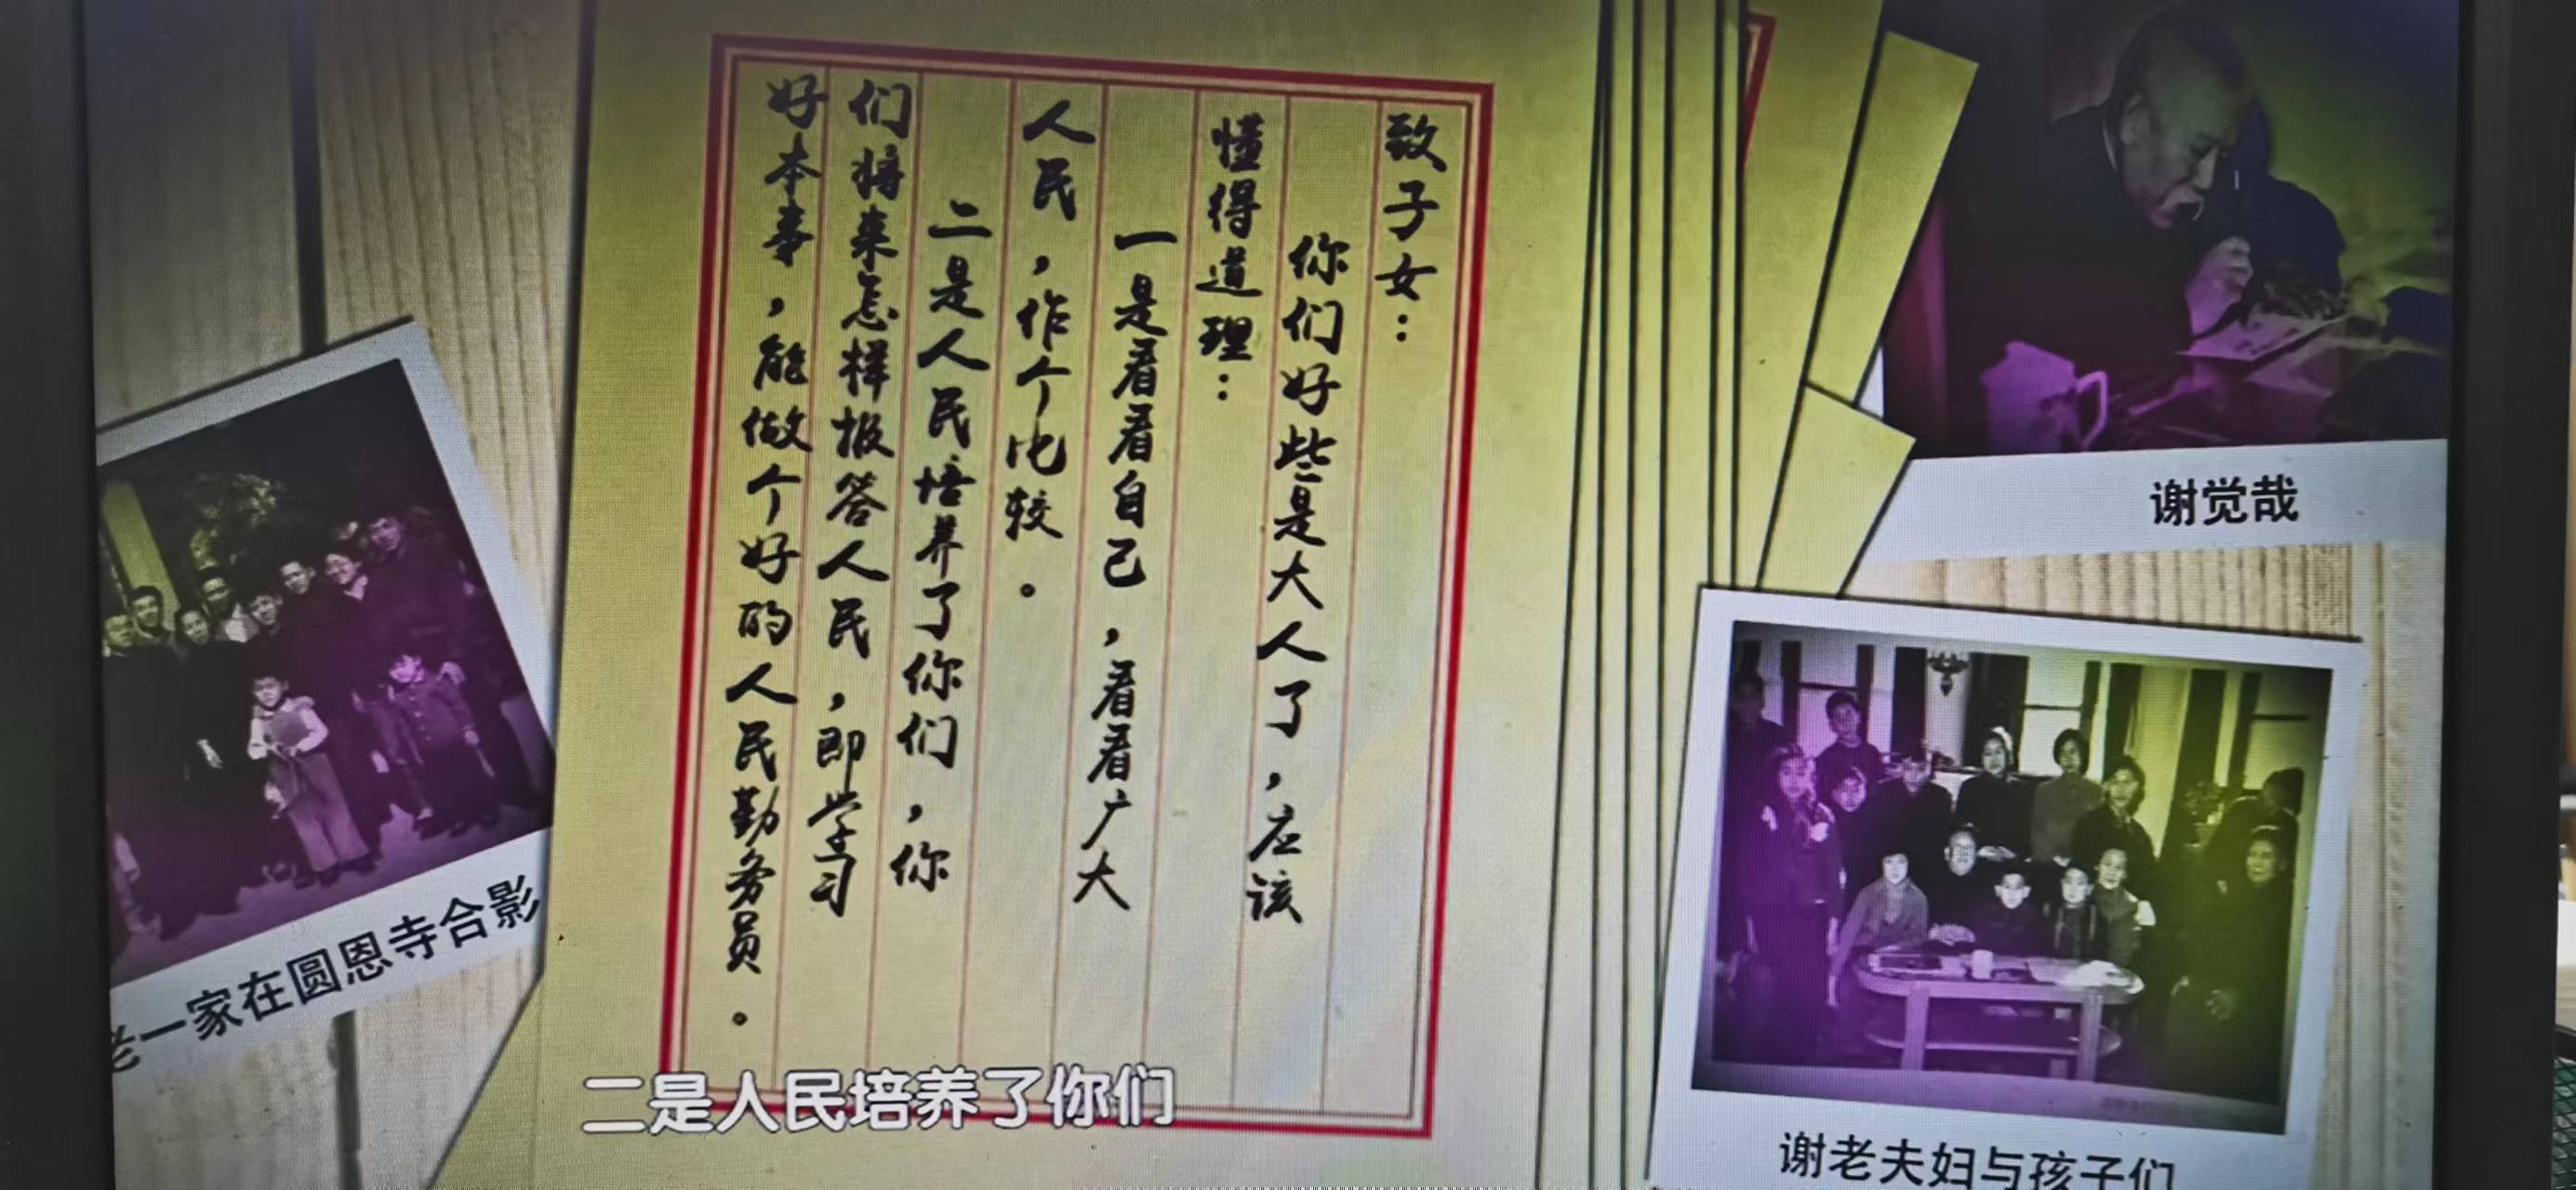 致子女：
你们好些是大人了，应该
懂得道理：
一是看看自己，看看广大
人民，作个比较。
二是人民培养了你们，你
们将来怎样报答人民，即学习
好本事，能做个好的人民勤务员。
二是人民培养了你们
谢觉哉
谢老夫妇与孩子们
老一家在圆恩寺合影